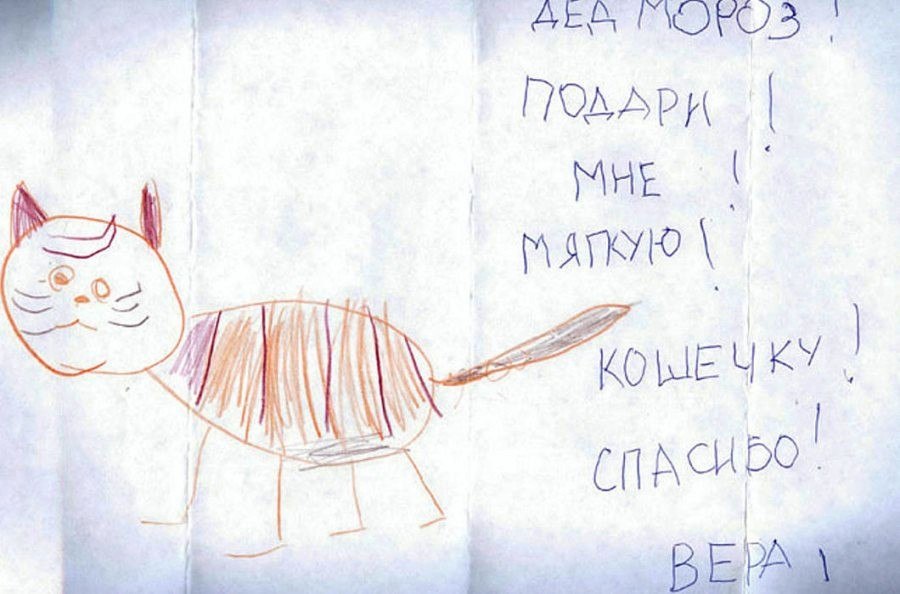 ДЕД МОРОЗ!
ПОДАРИ !
МНЕ !
МЯГКУЮ!
КОШЕЧКУ!
СПАСИБО!
ВЕРА!